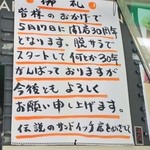 御礼
皆様のおかげで
5月17日に開店30周年
となります。脱サラで
スタートして何とか30年
がんばっておりますが
今後ともよろしく
お願い申し上げます。
伝説のサンドイッチ店